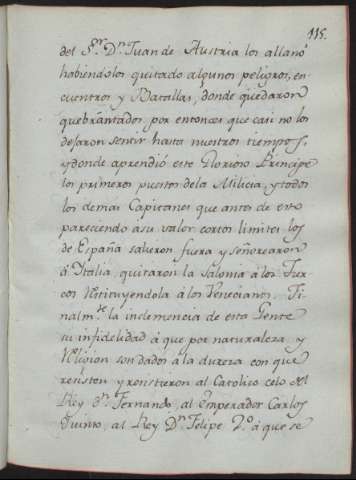 115.
del S.r D.n Juan de Austria los allanó
habiendolos quitado algunos peligros, en
cuentros y Batallas, donde quedaron
quebrantados por entonces que casi no los
dejaron sentir hasta nuestros tiempos,
y donde aprendió este Glorioso Principe
los primeros puestos dela Milicia, y todos
los demas Capitanes que antes de esto
pareciendo á su valor cortos limites los
de España salieron fuera y señorearon
á Italia, quitaron la á los Tur-
cos Restituyendola á los Venecianos. Fi-
nalm.te la inclemencia de esta Gente
su infidelidad á que por naturaleza y
Religion son dados á la dureza con que
resisten y resistieron al Catolico celo del
Rey D.n Fernando, al Emperador Carlos
Quinto, al Rey D.n Felipe 2.o á que se